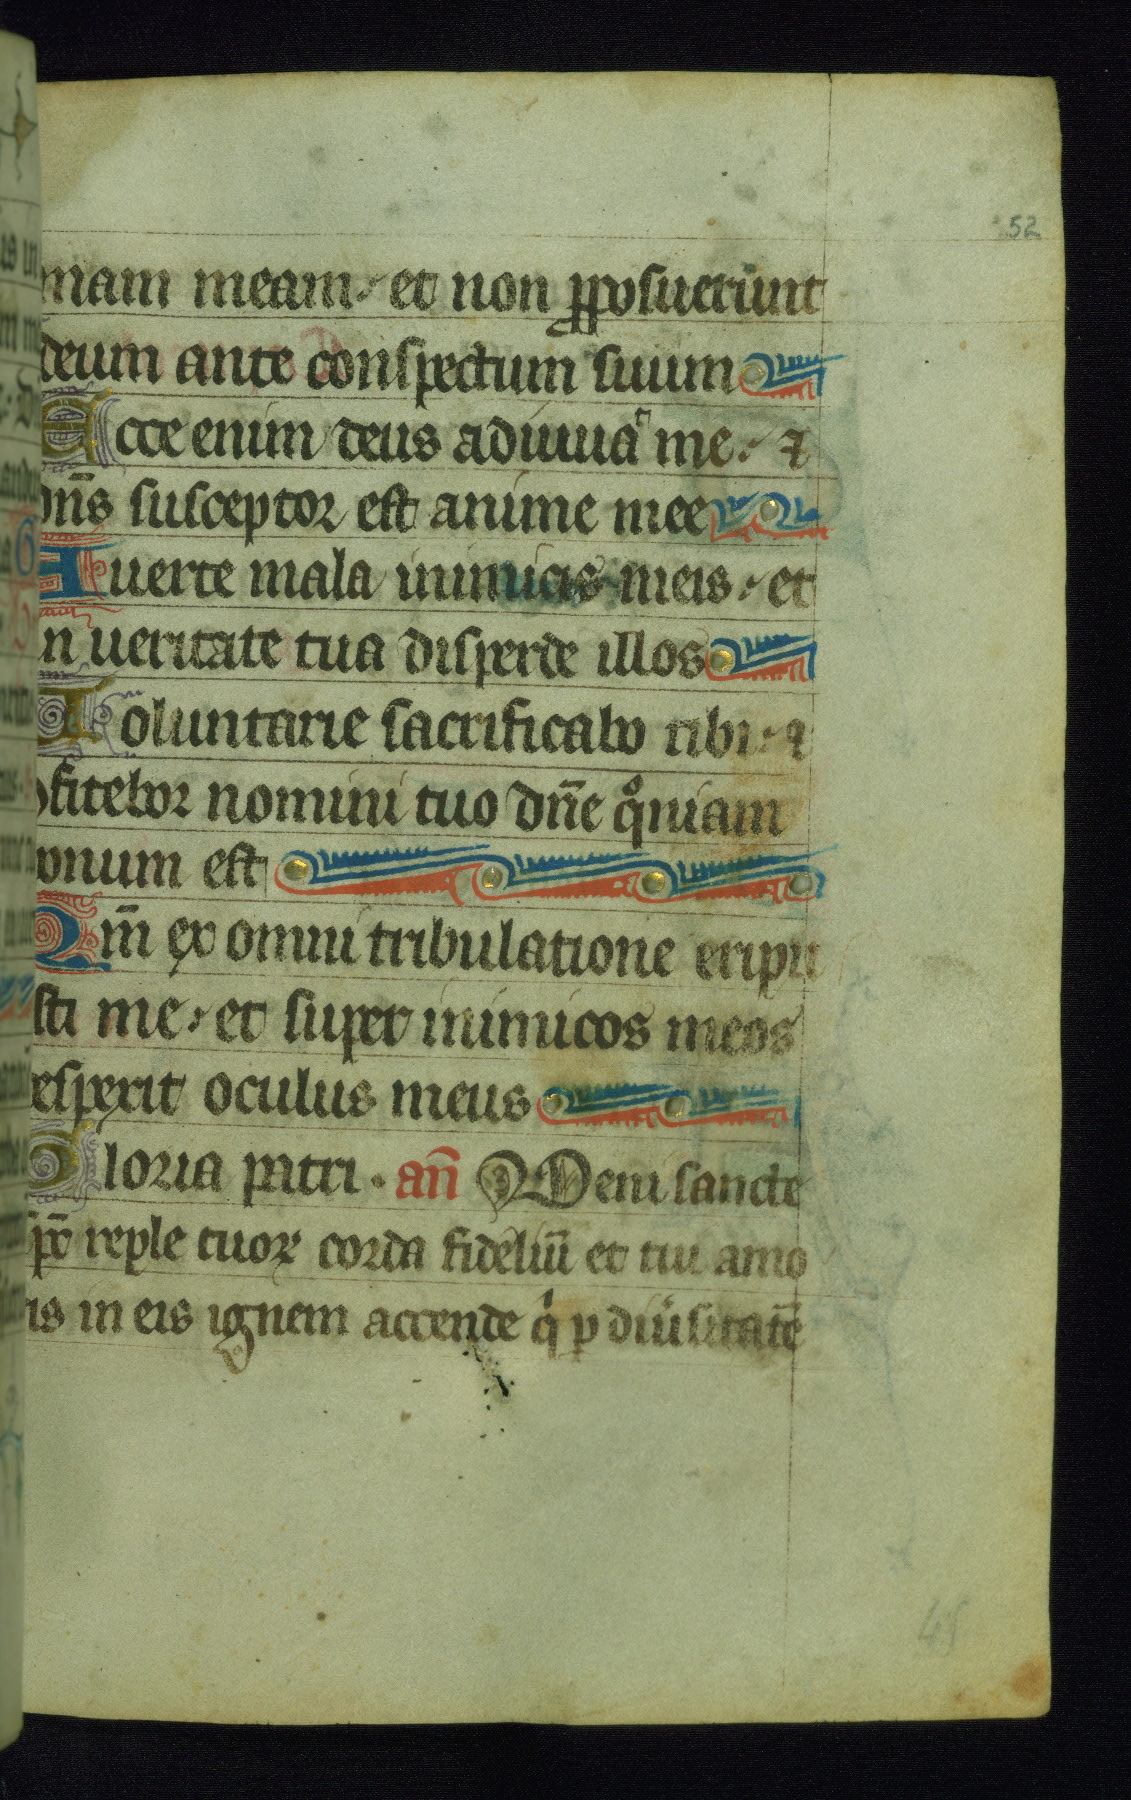 52
mam meam. et non proposuerunt
deum ante conspectum suum
Ecce enim deus adiuua me. ⁊
dn̄s susceptor est anime mee
Auerte mala inimicis meis. et
in ueritate tua disperde illos
Uoluntarie sacrificabo tibi. ⁊
ↄfitebor nomini tuo dn̄e qͦniam
bonum est
Qm̄ ex omni tribulatione eripu
isti me. et super inimicos meos
respexit oculus meus
Gloria patri. an̄ Veni sancte
sp̄c reple tuoꝝ corda fideliū et tui amo
ris in eis ignem accende qͥ ꝑ diu̾sitatē
45